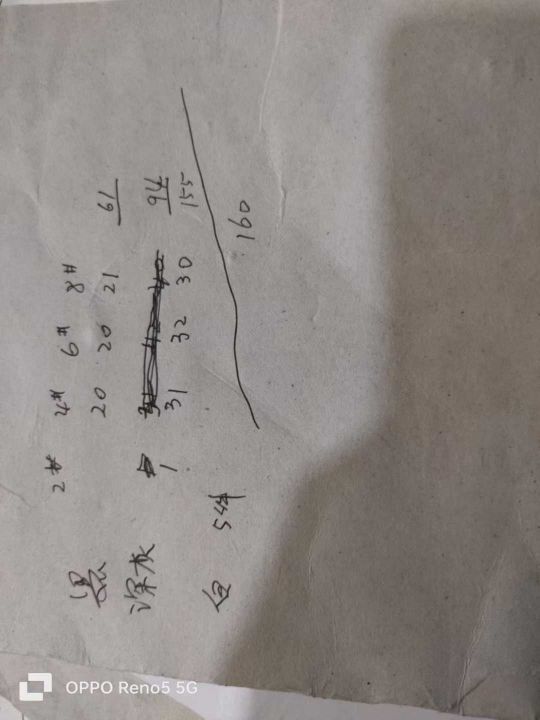 2# 4# 6# 8#
黑 20 20 21 61
深 1 31 32 30 94
155
白 5件 160
OPPO Reno5 5G